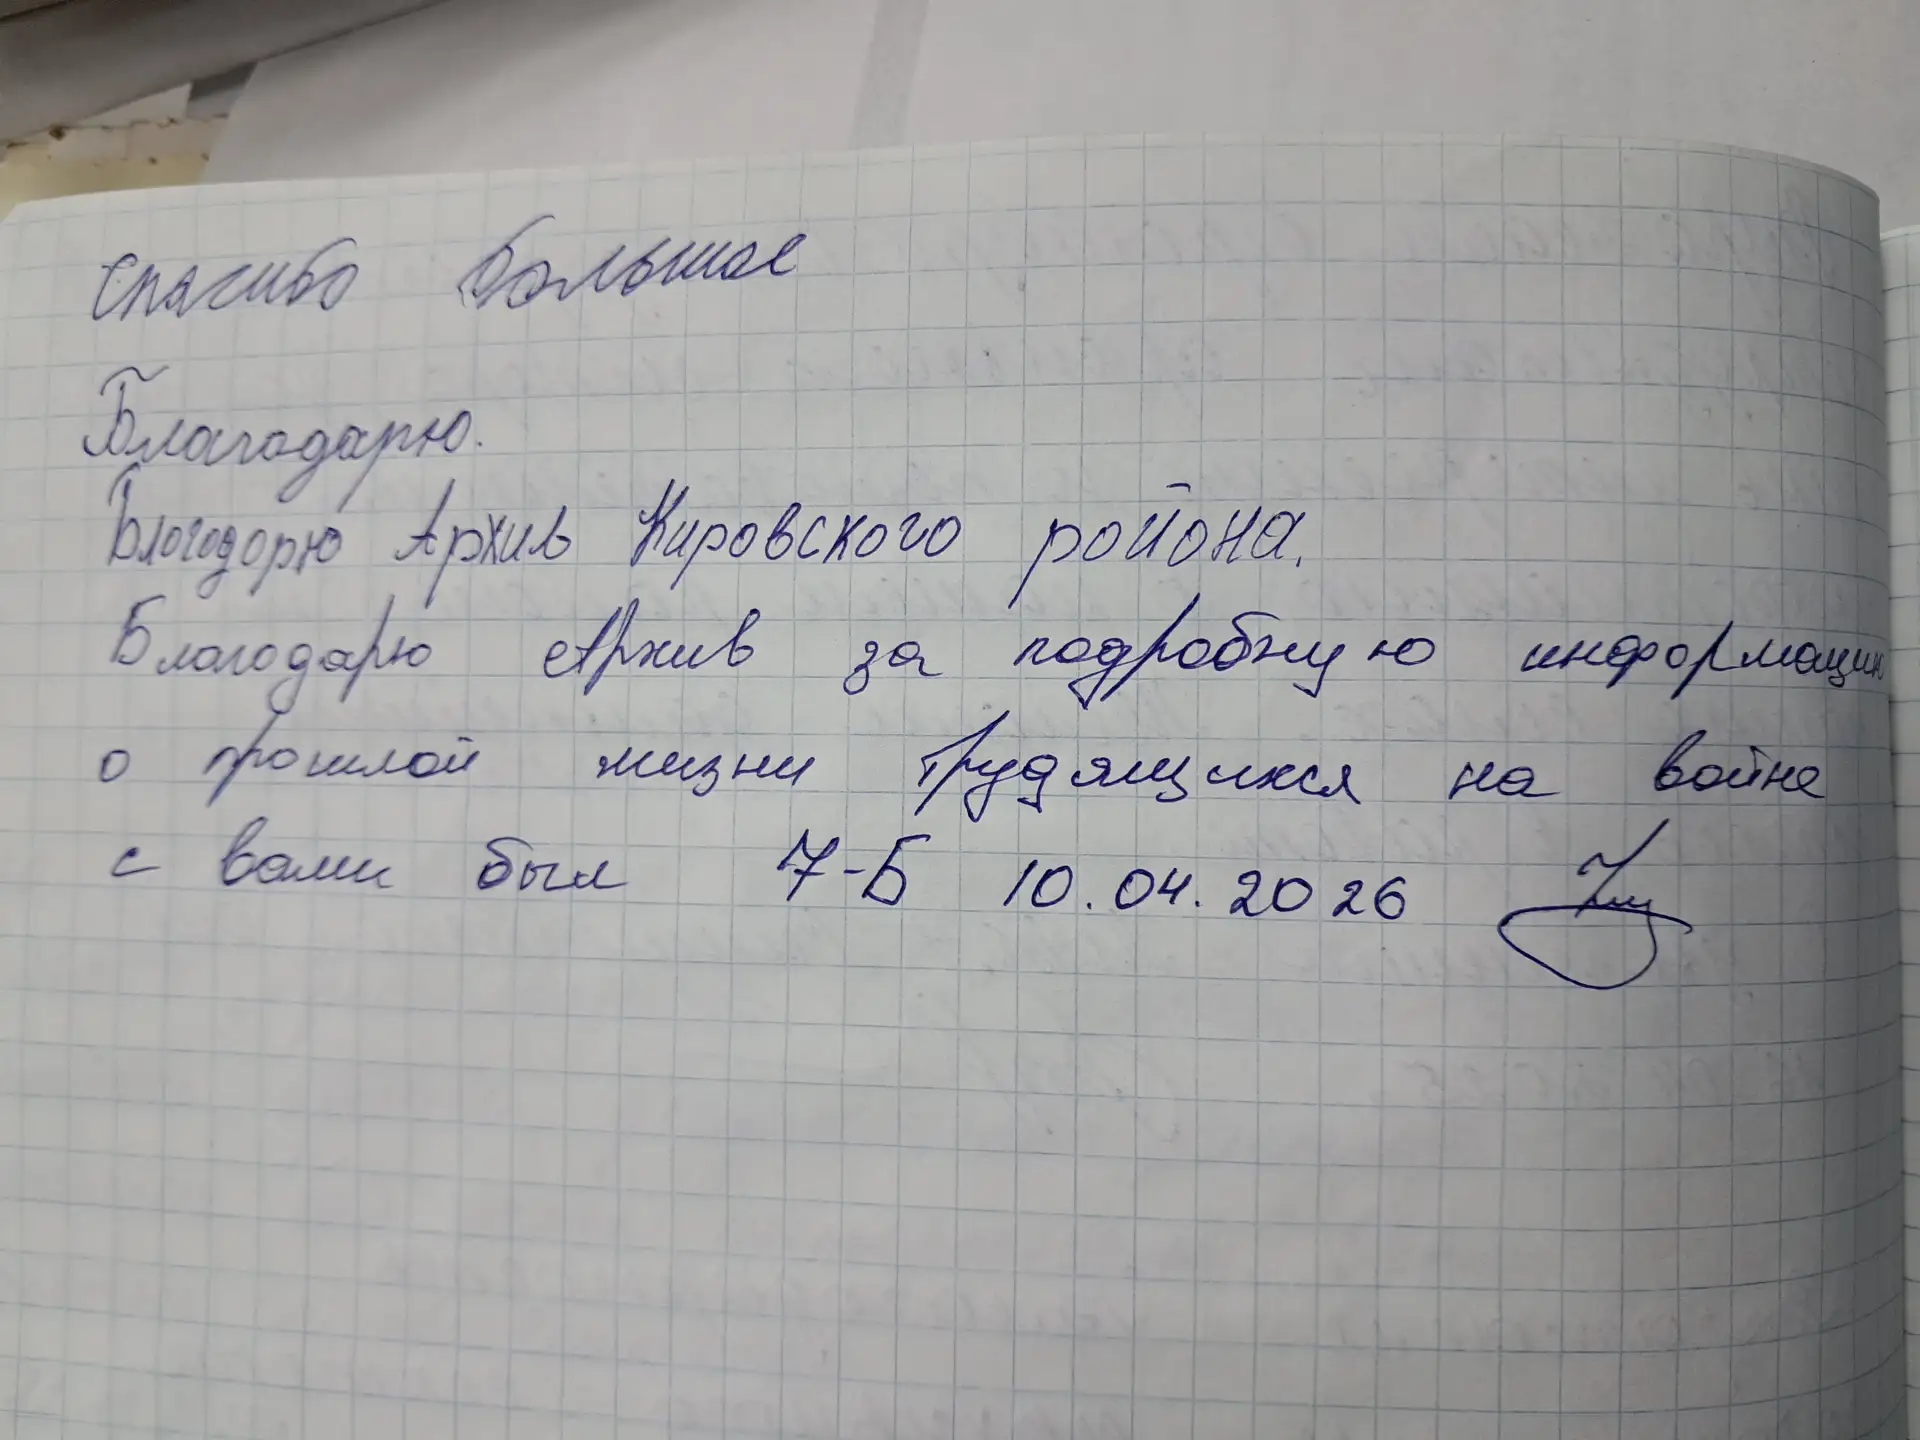 Спасибо большое
Благодарю.
Благодорю Архив Кировского района.
Благодарю Архив за подробную информации
о прошлой жизни трудящихся на войне
с вами был 7-Б 10.04.2026